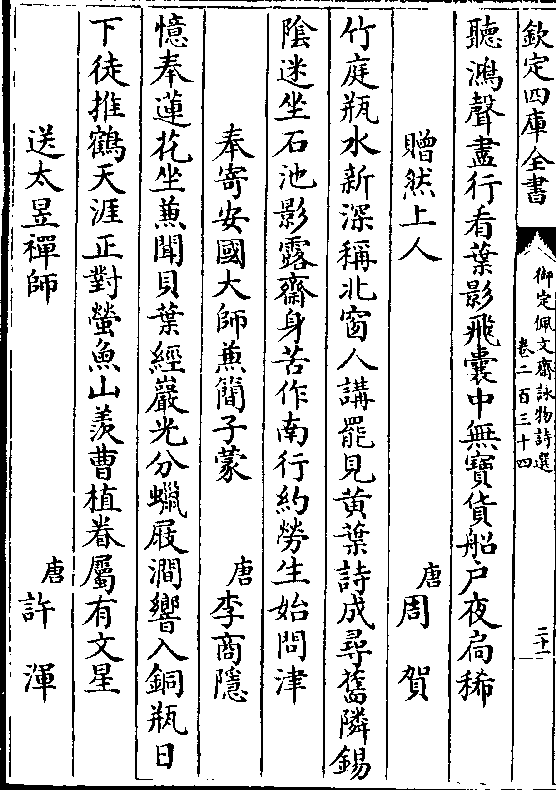 欽定四庫全書
御定佩文齋詠物詩選
卷二百三十四
二十一
聽鴻聲盡行看葉影飛囊中無寶貨船户夜扃稀
贈然上人
唐周賀
竹庭瓶水新深稱北窗人講罷見黄葉詩成尋舊隣錫
陰迷坐石池影露齋身苦作南行約勞生始問津
奉寄安國大師兼簡子蒙
唐李商隱
憶奉蓮花坐兼聞貝葉經巖光分蠟屐澗響入銅瓶日
下徒推鶴天涯正對螢魚山羨曹植眷屬有文星
送太昱禪師
唐許渾